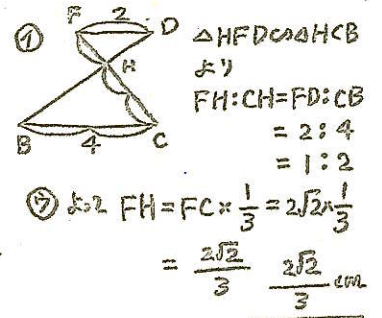 ①
F 2 D
H
B 4 C
△HFD∽△HCB
より
FH:CH=FD:CB
=2:4
=1:2
㋒ よって FH=FC×1/3=2√2×1/3
=2√2/3 2√2/3 cm